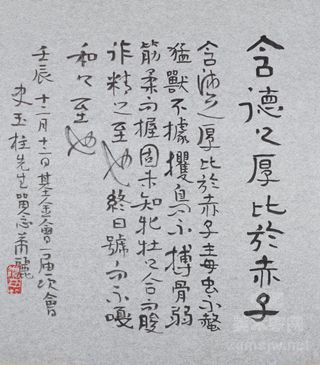 含德之厚比於赤子
含德之厚比於赤子毒虫不螫
猛獸不據攫鳥不搏骨弱
筋柔而握固未知牝牡之合而朘
作精之至也終日號而不嗄
和之至也
壬辰十二月十二日基金會一届次會
史玉柱先生留念